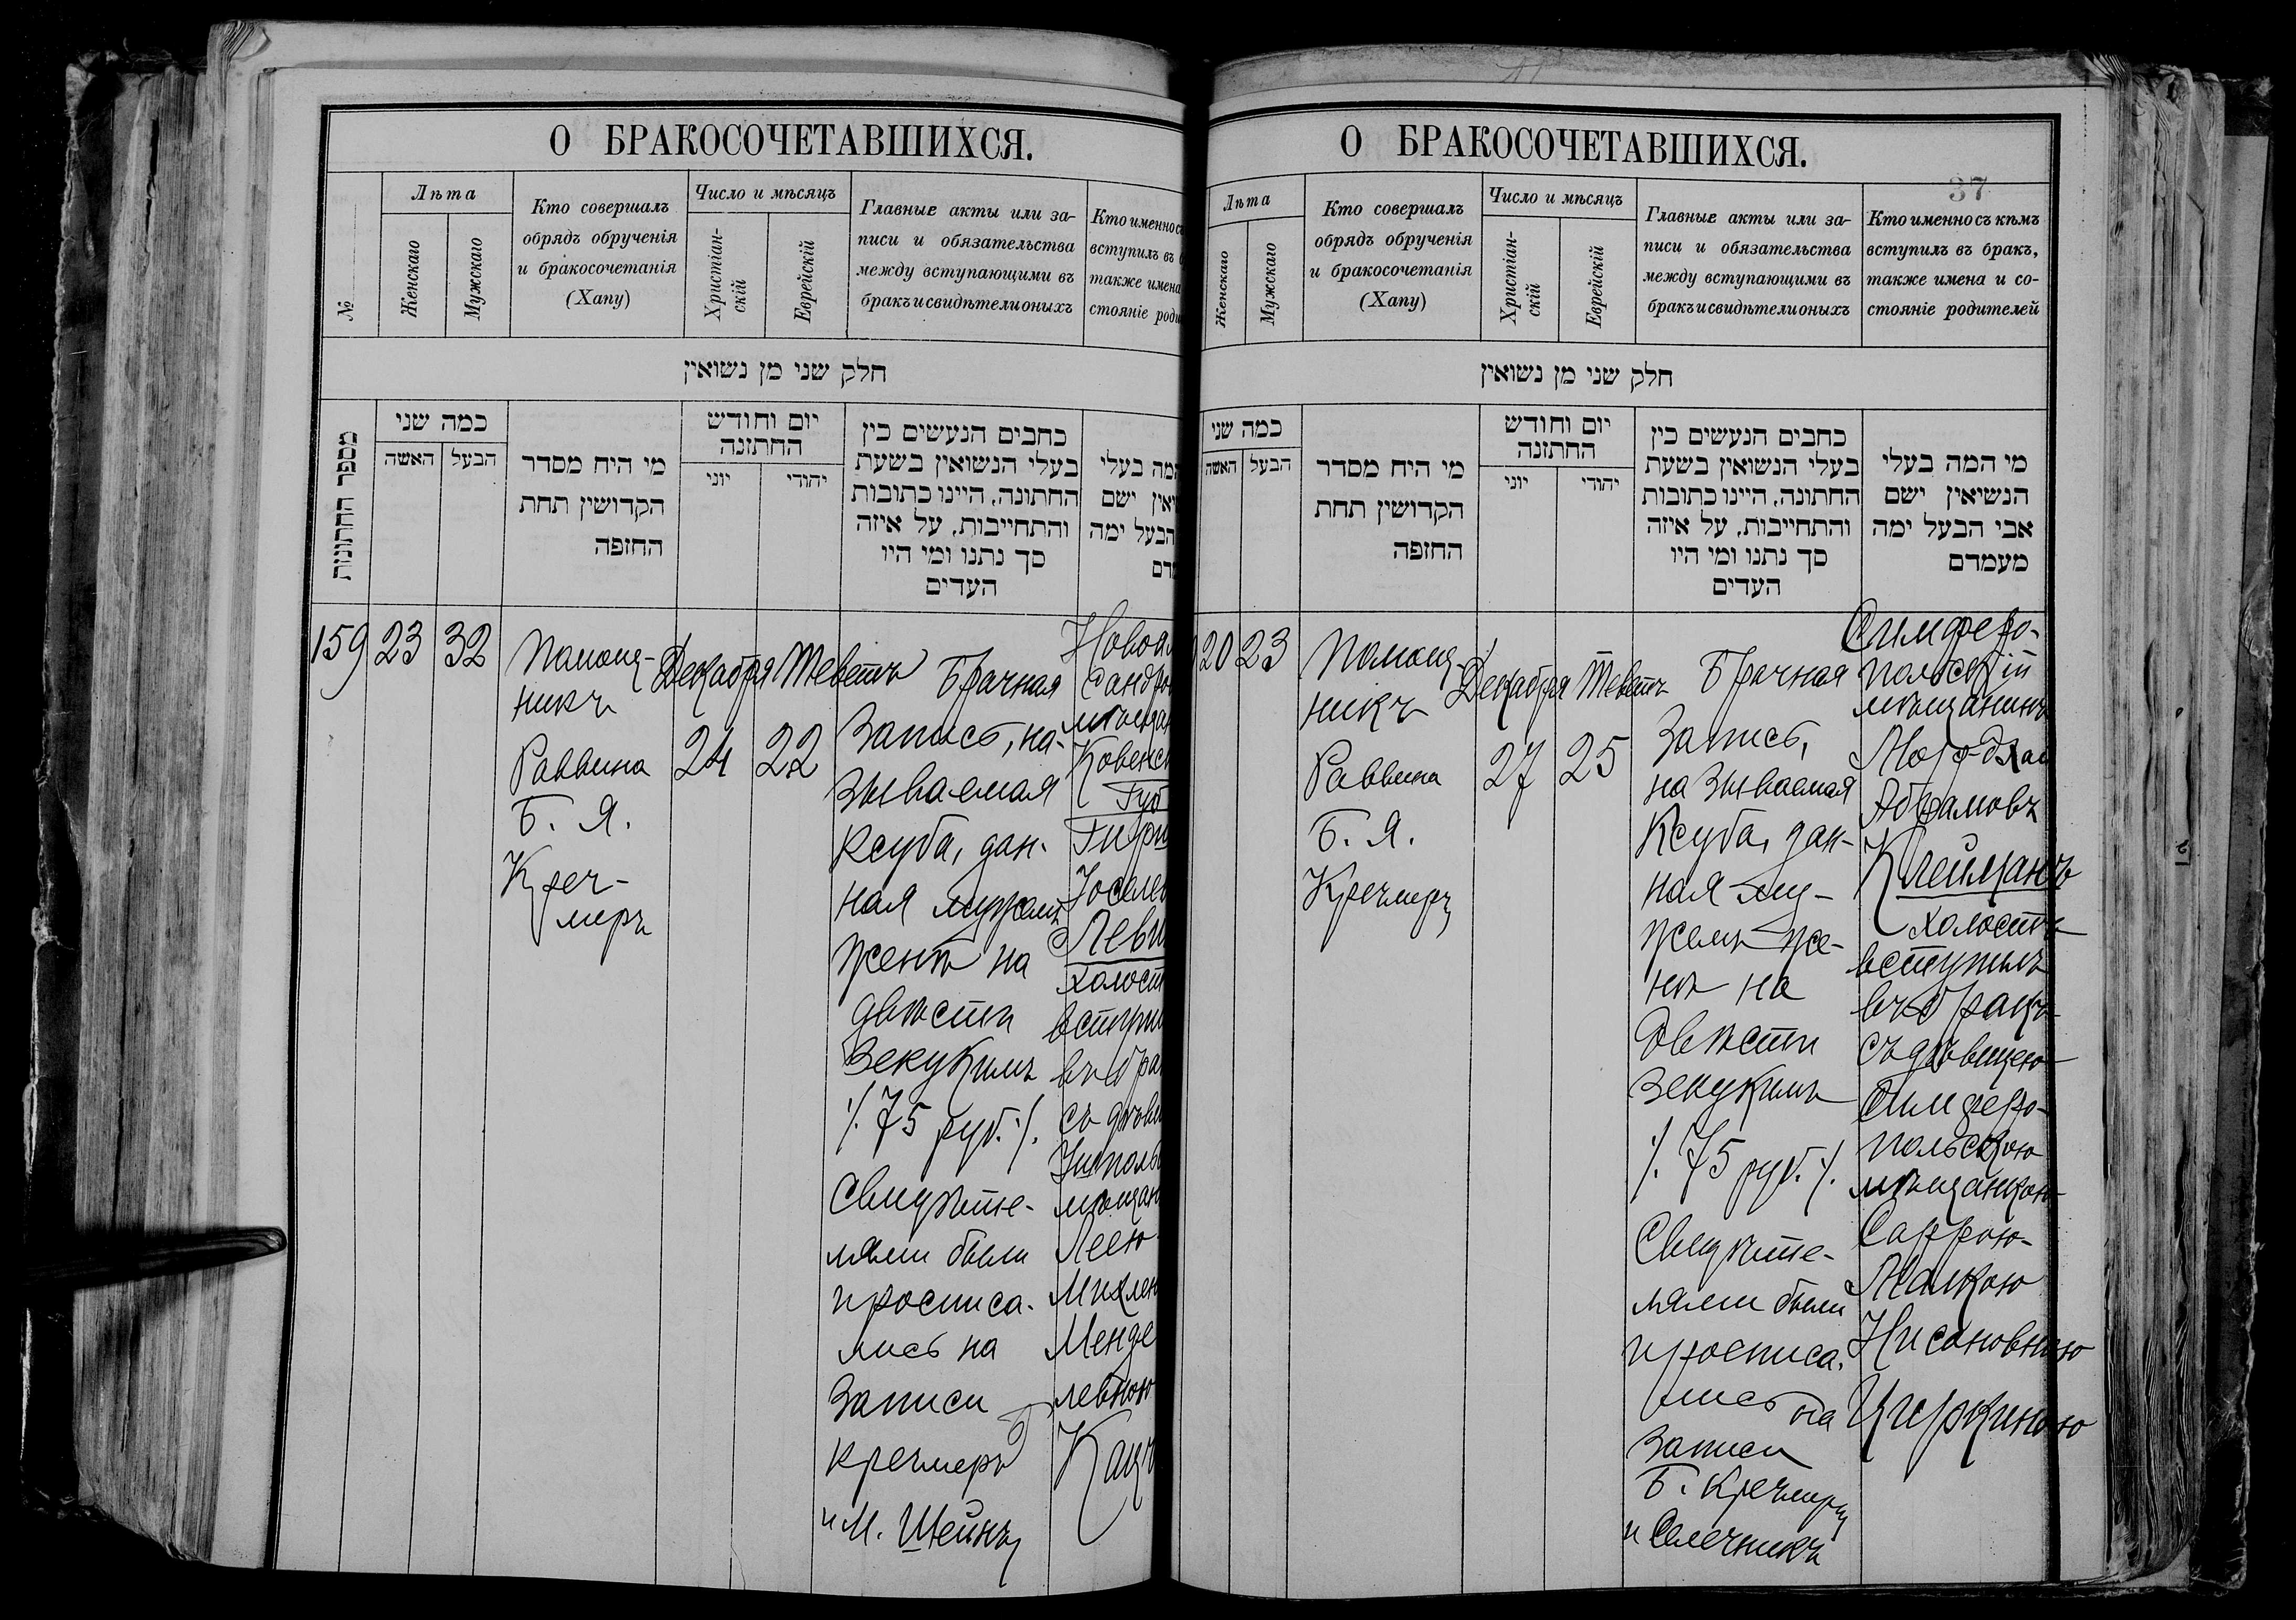 О БРАКОСОЧЕТАВШИХСЯ.
№
Лѣта
Женскаго
Мужскаго
Кто совершалъ
обрядъ обрученія
и бракосочетанія
(Хапу)
Число и мѣсяцъ
Христіан-
скій
Еврейскій
Главные акты или за-
писи и обязательства
между вступающими въ
бракъ и свидѣтели оныхъ
Кто именно съ
вступилъ въ
также имена
стояніе
חלק שני מן נשואין
מספר החתונות
כמה שני
האשה
הבעל
מי היח מסדר
הקדושין תחת
החזפה
יום וחודש
החתזנה
יוני
יהודי
כחבים הנעשים כין
בעלי הנשואין בשעת
החתונה, היינו כתובות
והתחייבות, על איזה
סך נתנו ומי היו
העדים
המה בעלי
ישם
הבעל ימה
159
23
32
Помощ-
никъ
Раввина
Б. Я.
Креч-
меръ
Декабря
24
Теветъ
22
Брачная
запись, на-
зываемая
Ксуба, дан-
ная мужемъ
женѣ на
двѣсти
зекукимъ
/. 75 руб. /.
Свидѣте-
лями были
и росписа-
лись на
записи
Кречмеръ
и М. Штейнъ
Мендe
левною
Кацъ
О БРАКОСОЧЕТАВШИХСЯ.
37
Лѣта
Женскаго
Мужскаго
Кто совершалъ
обрядъ обрученія
и бракосочетанія
(Хапу)
Число и мѣсяцъ
Христіан-
скій
Еврейскій
Главные акты или за-
писи и обязательства
между вступающими въ
бракъ и свидѣтели оныхъ
Кто именно съ кѣмъ
вступилъ въ бракъ,
также имена и со-
стояніе родителей
חלק שני מן נשואין
כמה שני
האשה
הבעל
מי היח מסדר
הקדושין תחת
החזפה
יום וחודש
החתזנה
יוני
יהודי
כחבים הנעשים כין
בעלי הנשואין בשעת
החתונה, היינו כתובות
והתחייבות, על איזה
סך נתנו ומי היו
העדים
מי המה בעלי
הנשיאין ישם
אבי הבעל ימה
מעמדם
20
23
Помощ-
никъ
Раввина
Б. Я.
Кречмеръ
Декабря
27
Теветъ
25
Брачная
запись,
называемая
Ксуба, дан-
ная му-
жемъ же-
нѣ на
двѣсти
зекукимъ
/. 75 руб. /.
Свидѣте-
лями были
и росписа-
лись на
записи
Б. Кречмеръ
и Селечникъ
Симферо-
польскій
мѣщанинъ
Мордхай
Абрамовъ
Клейманъ
холостъ
вступилъ
въ бракъ
съ дѣвицею
Симферо-
польскою
мѣщанкою
Саррою-
Малкою
Нисановною
Циркиною